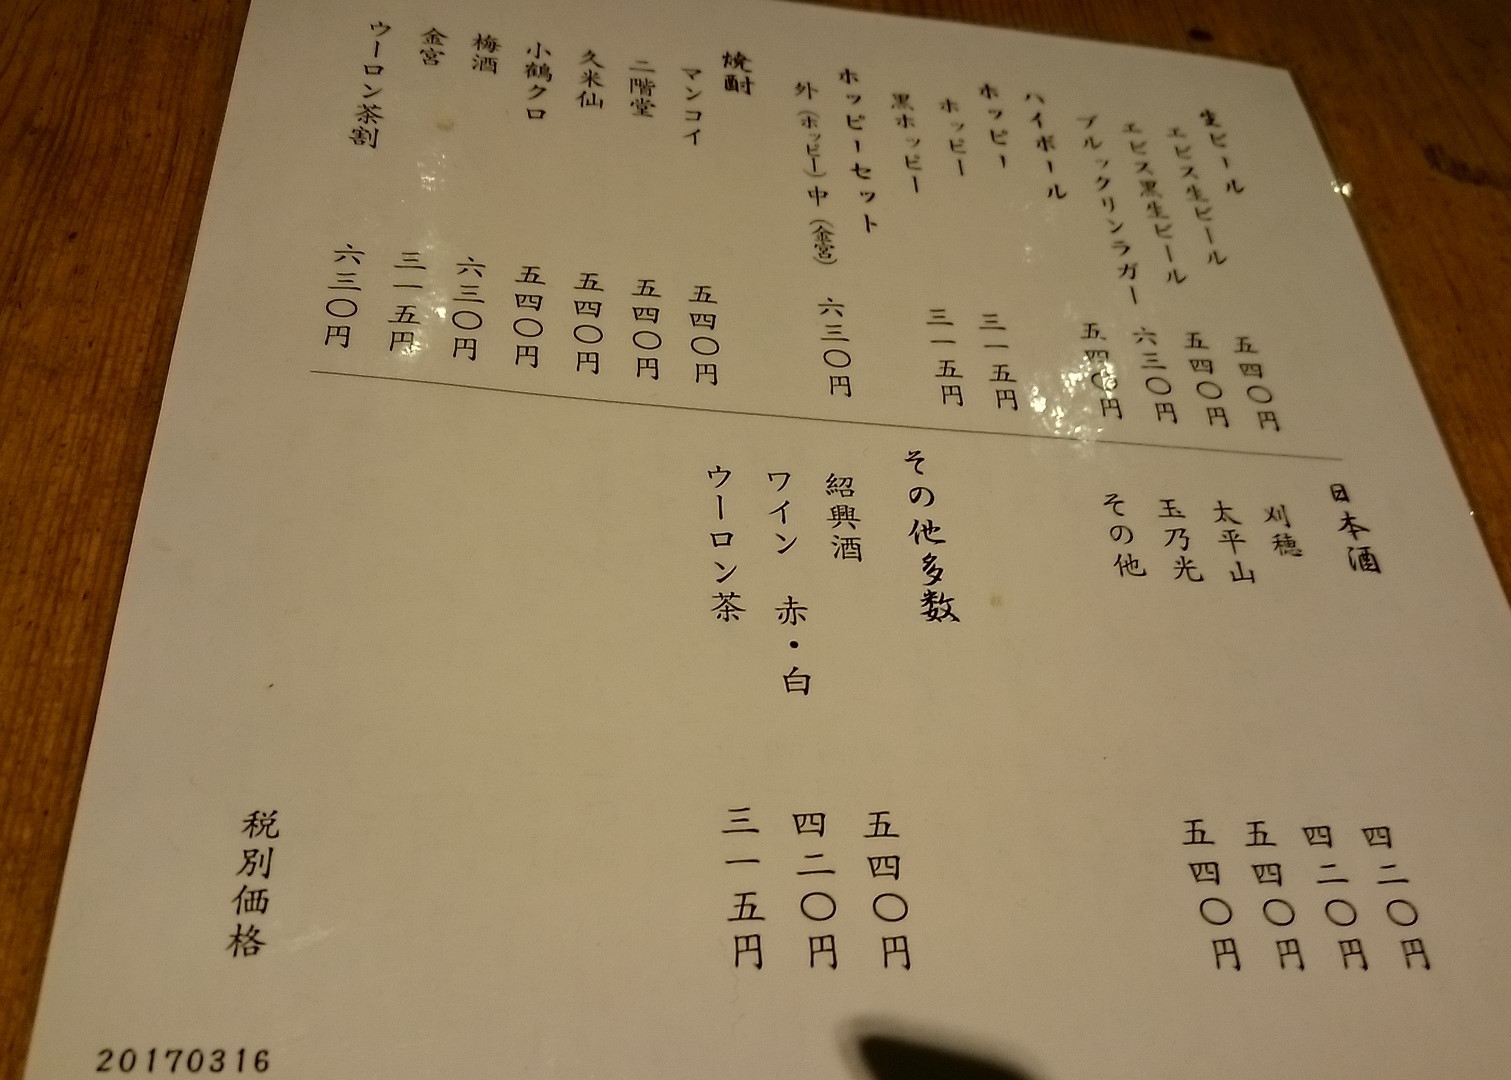 生ビール
エビス生ビール 五四〇円
エビス黒生ビール 五四〇円
ブルックリンラガー 六三〇円
ハイボール 五四〇円
ホッピー
ホッピー 三一五円
黒ホッピー 三一五円
ホッピーセット
外(ホッピー)中(金宮) 六三〇円
焼酎
マンコイ 五四〇円
二階堂 五四〇円
久米仙 五四〇円
小鶴クロ 五四〇円
梅酒 六三〇円
金宮 三一五円
ウーロン茶割 六三〇円
日本酒
刈穂 四二〇円
太平山 四二〇円
玉乃光 五四〇円
その他 五四〇円
その他多数
紹興酒 五四〇円
ワイン 赤・白 四二〇円
ウーロン茶 三一五円
税別価格
20170316